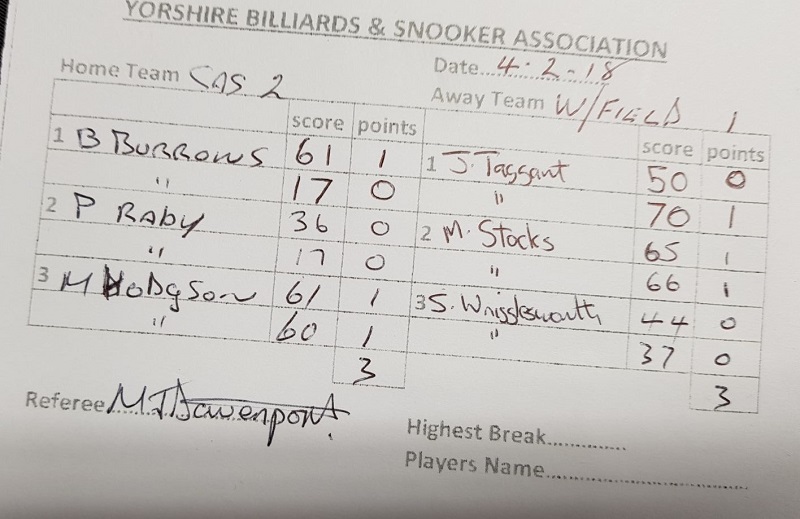 YORSHIRE BILLIARDS & SNOOKER ASSOCIATION
Home Team CAS 2
Date...4.2-18
Away Team W/FIELD 1
score points
score points
1 B BURROWS 61 1
1 J. Taggant 50 0
" 17 0
" 70 1
2 P RABY 36 0
2 M. Stocks 65 1
" 17 0
" 66 1
3 M HODgSon 61 1
3 S. Wrigglesworth 44 0
" 60 1
" 37 0
3
3
Referee MJDavenport
Highest Break.............
Players Name.................................